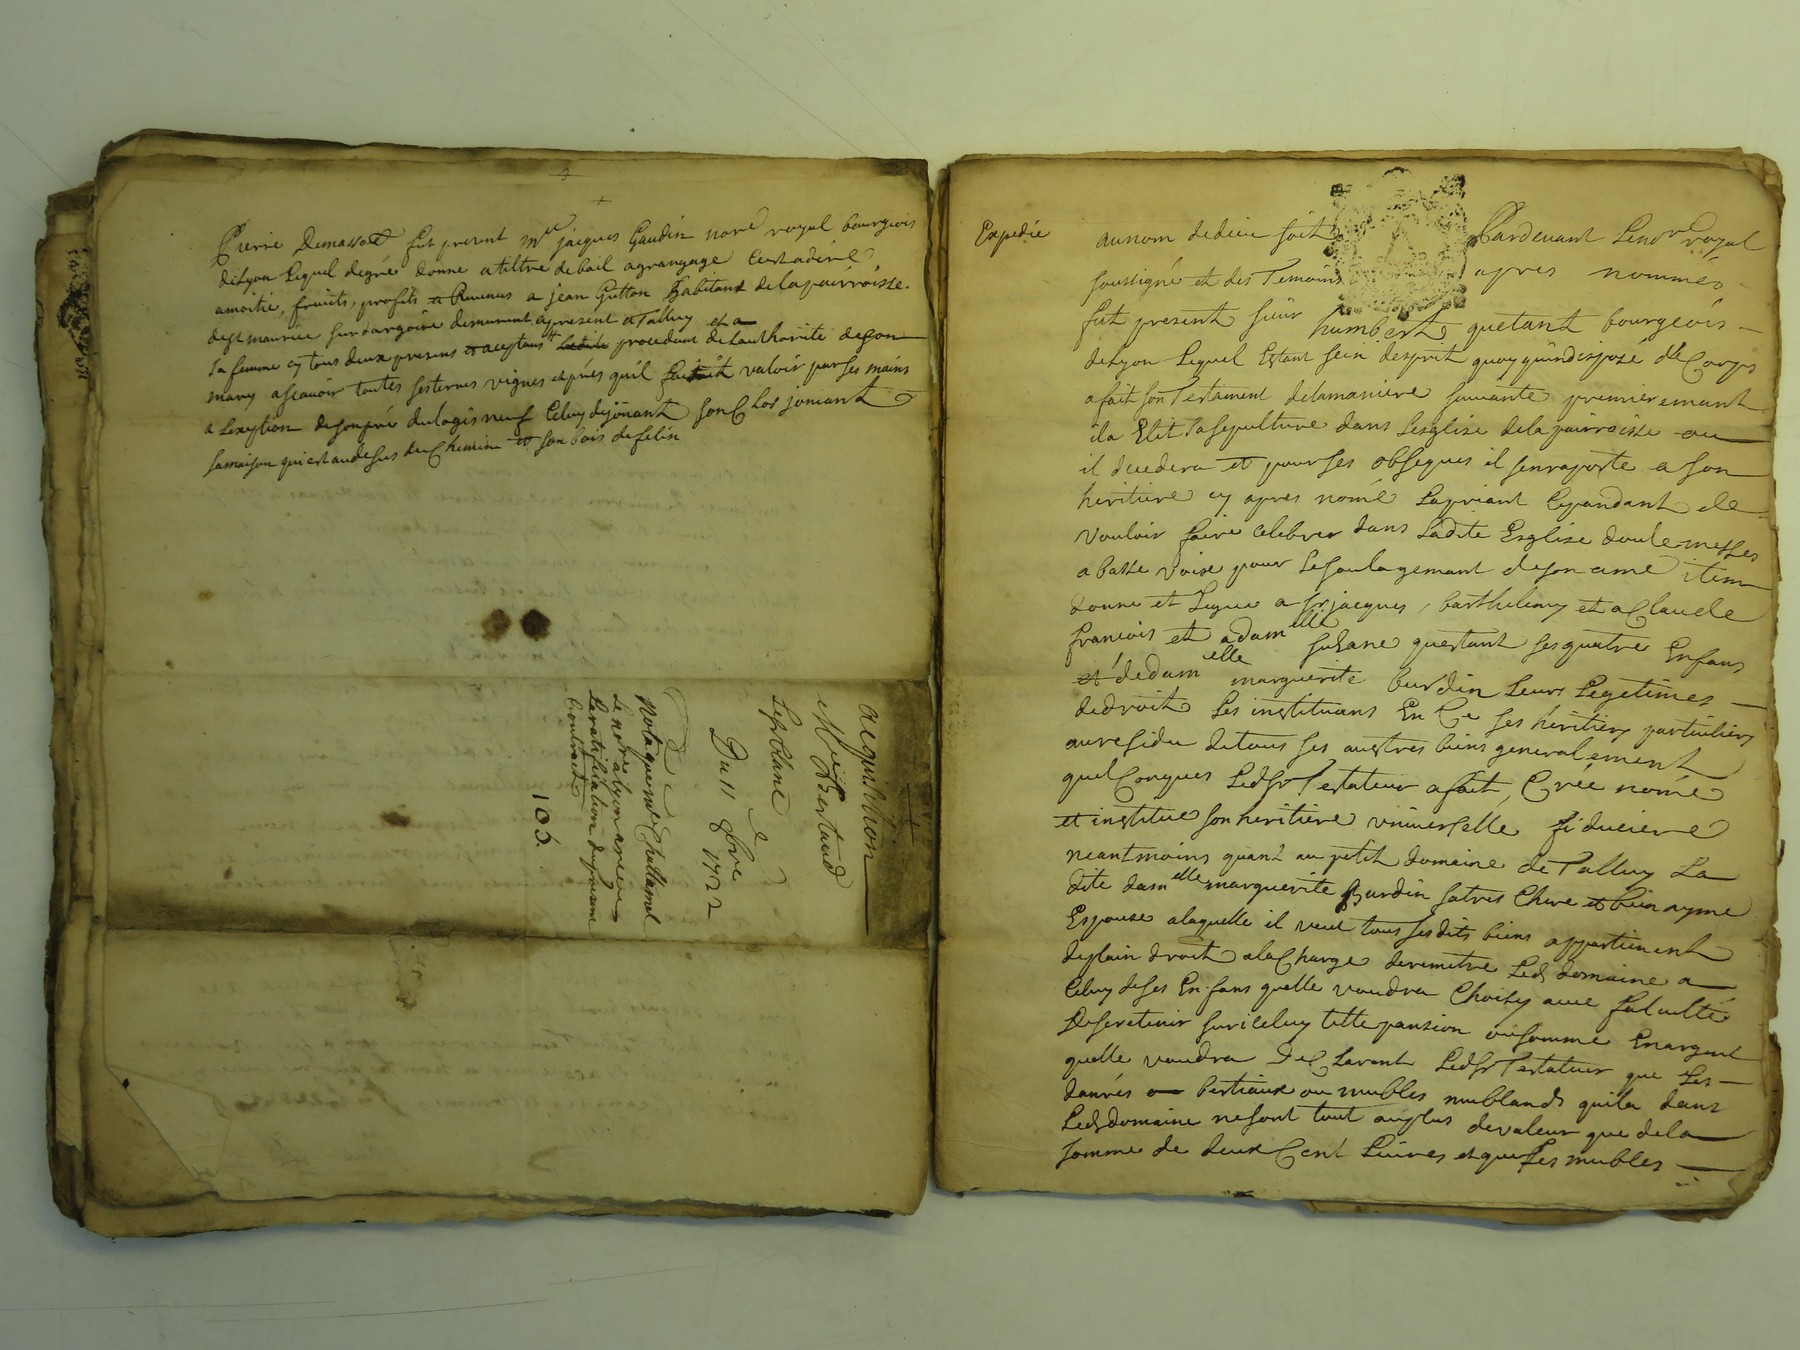 Pierre Demassod fut present mre jacques Gaudin nore royal bourgeois
delyon Lequel degré donne atiltre debail agrangage Cestadire
amoitié, fruits, profits et Revenus a jean Gutton habitant delaparroisse
de st maurice sur dargoire demeurant apresent a Talluy et a
sa femme cy tous deux presens et aceptans procedant de Lauthorité deson
mary ascauoir toutes sesterres vignes etprés quil valoir parses mains
a Lexeption desonpré dulogis neuf Celuy dejoignant son Clos joinant
samaison quiestaudesus du Chemin et son bois defelin
aequisition
Bertaud
Leporlane
Du 11 9bre 1722
Nota que me Chattanel
Le nore alyon areceu
La ratification dupresent
Contract
105.
Expedié
aunom dedieu soit Pardeuant Lenore royal
soussigné et des Temoins apres nommés
fut present sieur humbert quetant bourgeois
delyon Lequel Estant sein desprit quoy quindisposé de Corps
afait son Testament delamaniere suiuante premieremant
ila Elit sasepulture dans Lesglise delaparroisse ou
il decedera et pourses obseques il senraporte a son
heritiere cy apres nomé Lapriant Cependant de
vouloir faire celebrer dans Ladite Esglise douze messes
a basse voise pour Lesoulagemant deson ame item
donne et Legue a sr jacques, barthelemy et a Claude
francois et adamelle suzane questant sesquatre Enfans
et dedamelle marguerite burdin Leurs Legetimes
dedroit Les instituans En Ce ses heritiers particuliers
auresidu detous ses austres biens generalement
quelConques Ledsr Testateur afait, Créé nomé
et institue son heritiere vniuerselle fiduciere
neantmoins quant au petit domaine de Talluy La
dite damelle marguerite Burdin satres Chere et bien ayme
Espouse alaquelle il veut tous sesdits biens appartienent
deplain droit ala Charge deremetre Led domaine a
Celuy deses Enfans quelle voudra Choisy auec faculté
deseretenir suriceluy telle pansion ousomme Enargent
quelle voudra deClarant Ledsr Testateur que Les
danrés bestiaux ou mubles mublands quila dans
Led domaine nesont tout auplus devaleur que dela
somme de deux Cent Liures etque ses mubles